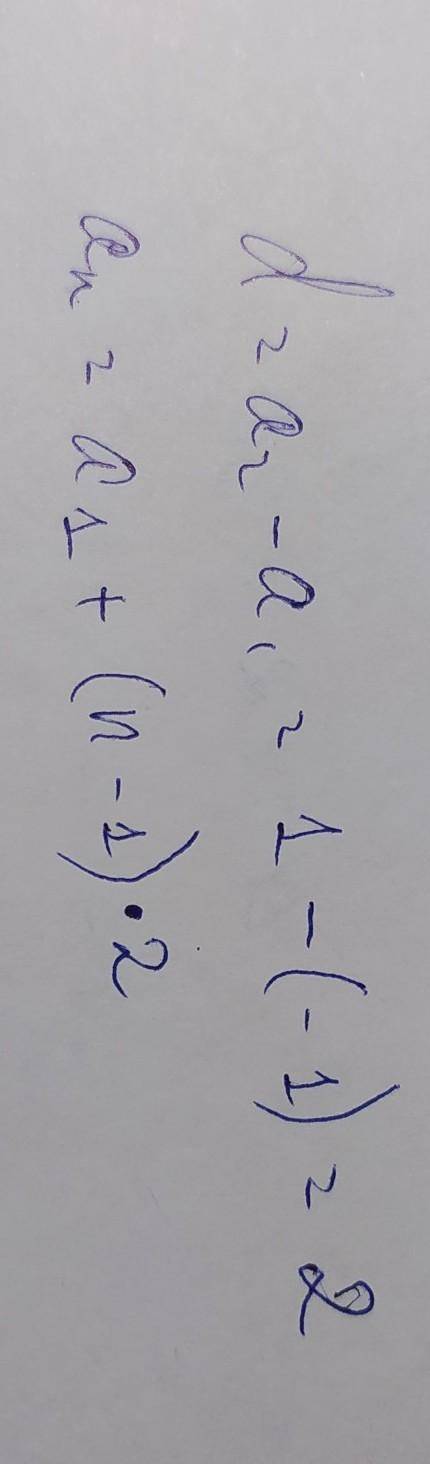 d = a₂ - a₁ = 1 - (-1) = 2
aₙ = a₁ + (n - 1) · 2